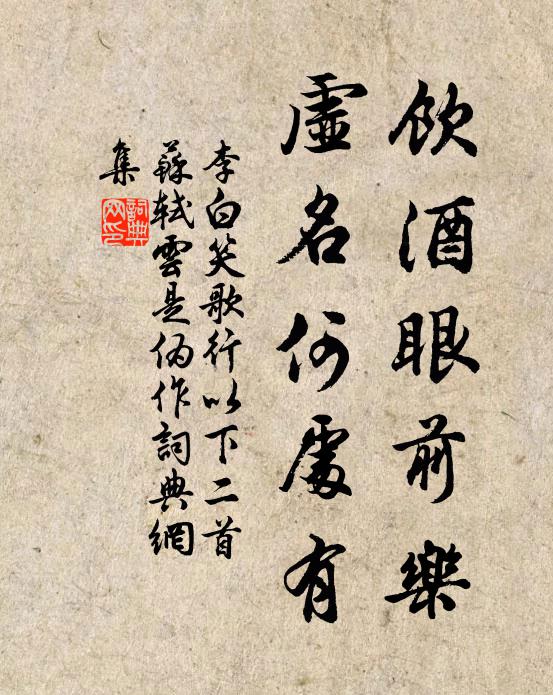 飲酒眼前樂
虛名何處有
李白笑歌行以下二首
蘇軾雲是偽作詞典網
集
詞典網印